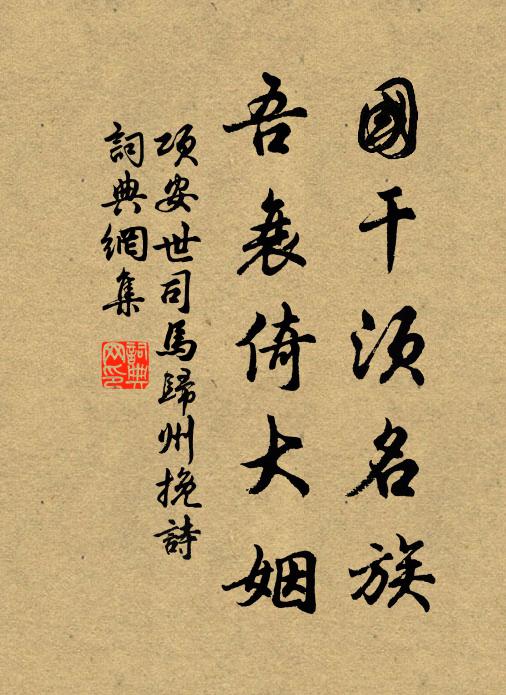 國干須名族
吾衰倚大姻
項安世司馬歸州挽詩
詞典網集
詞典
网印